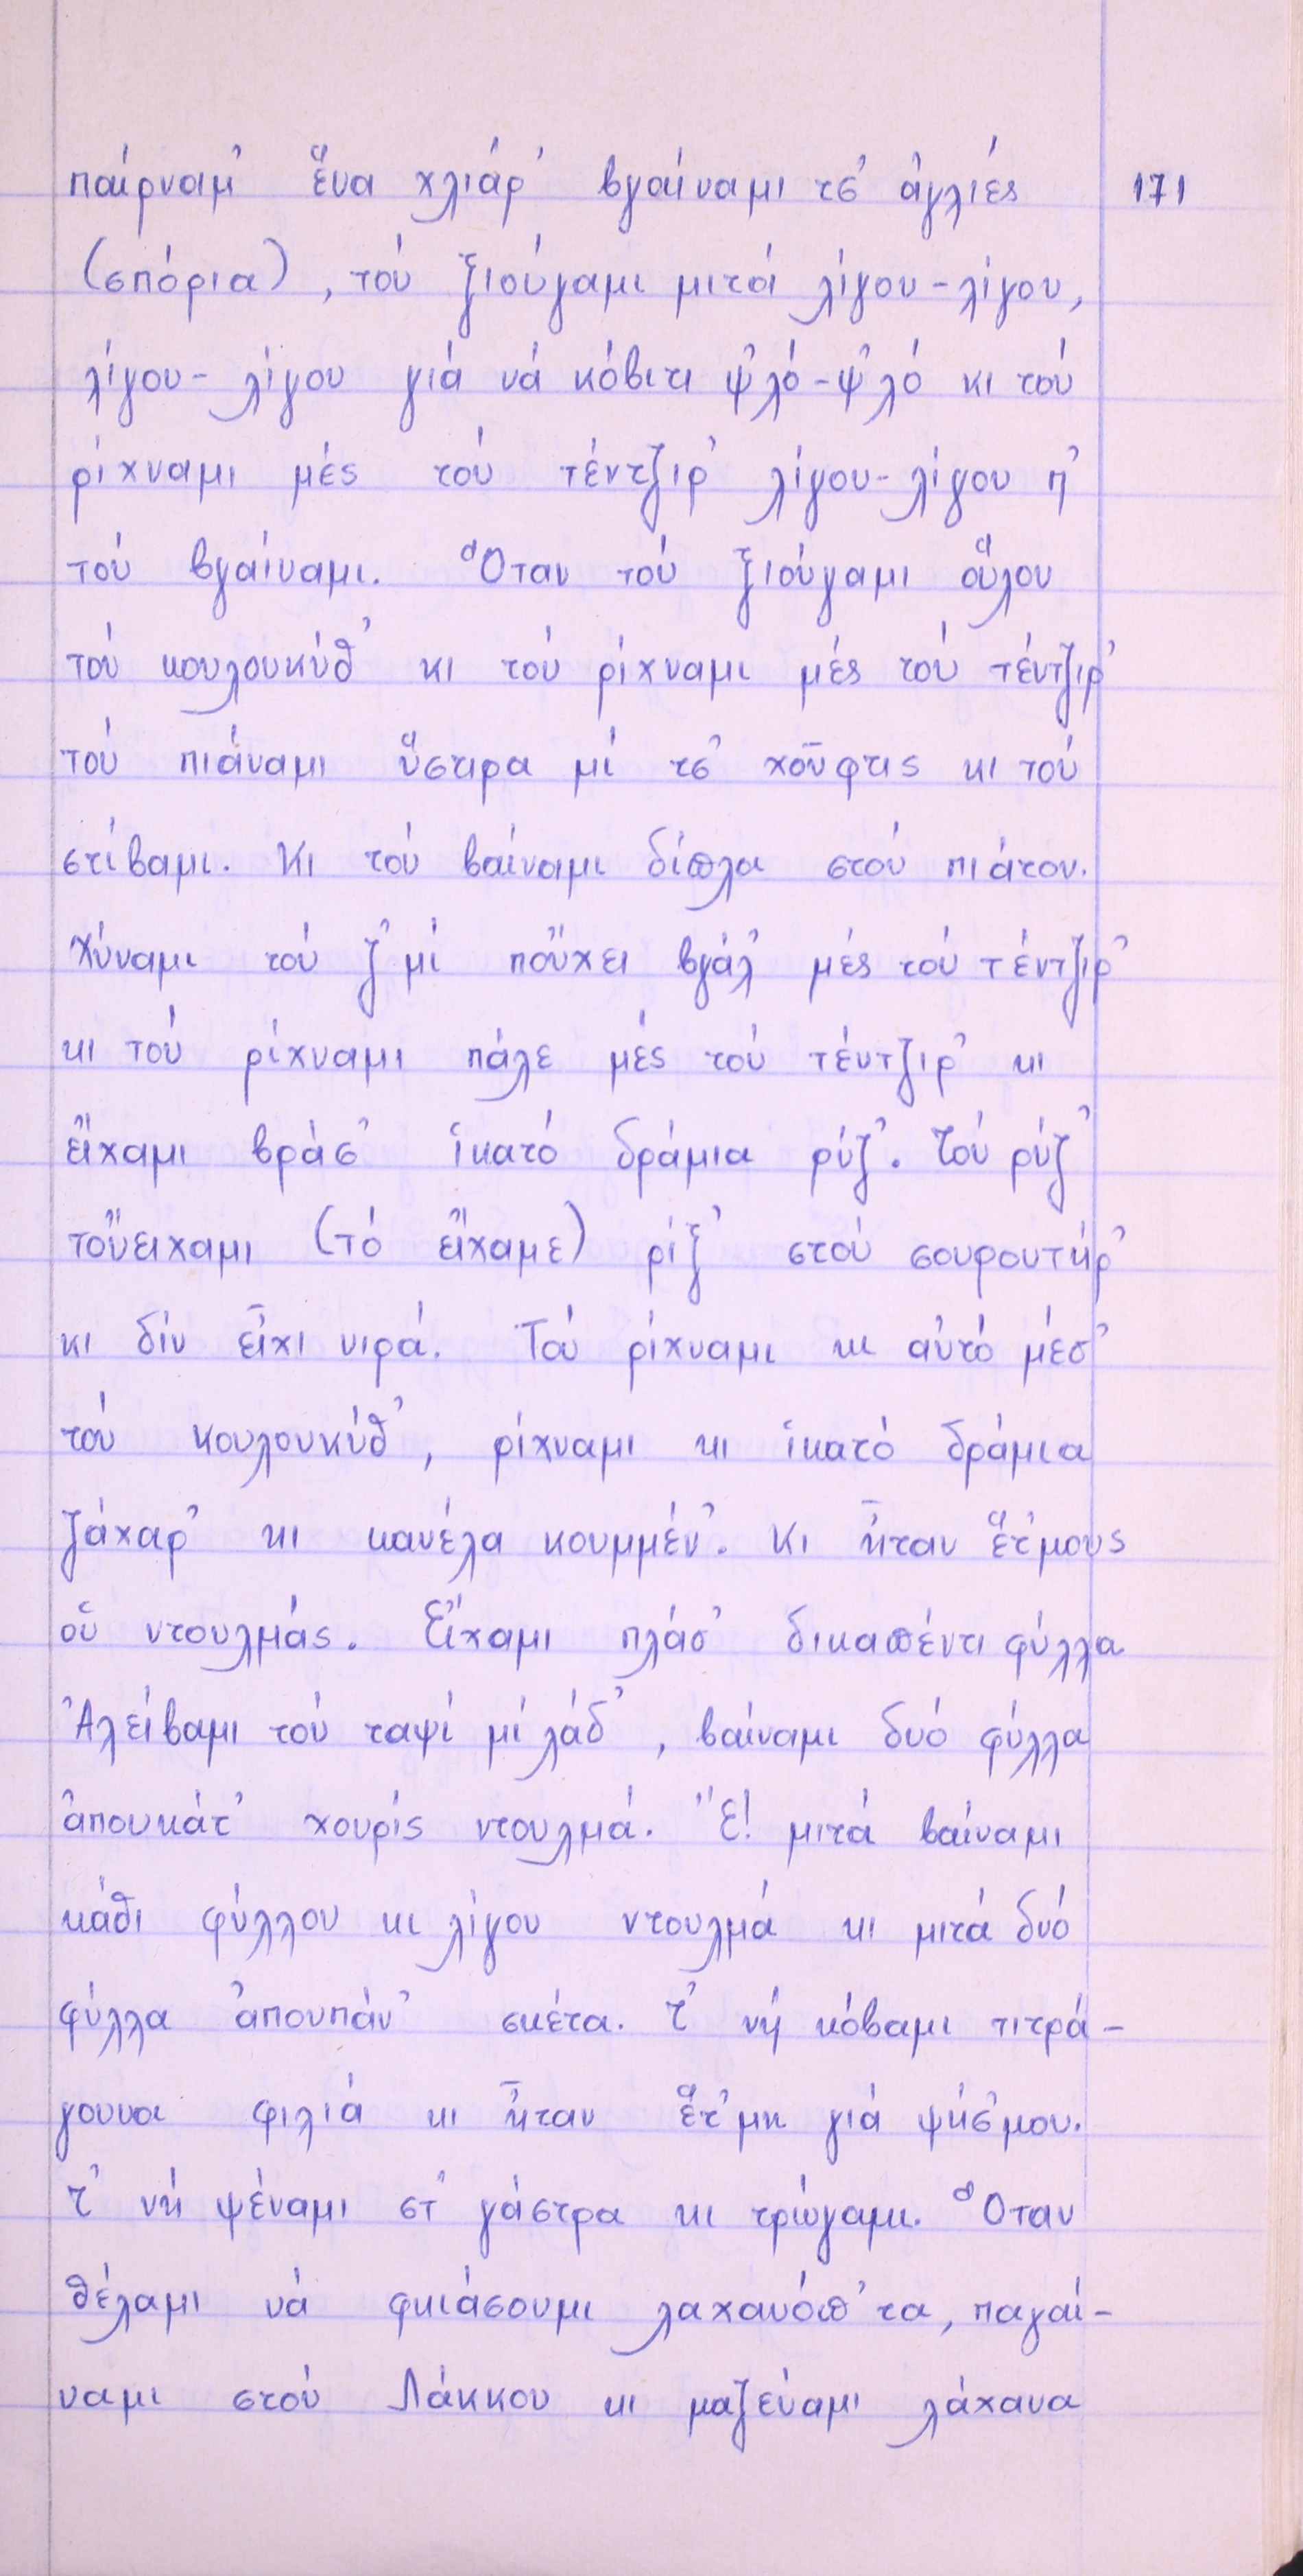 παίρναμ' ἕνα χλιάρ' βγαίναμι τσ' ἀγλιές 171
(σπόρια), τού ξιούγαμι μιτά λίγου-λίγου,
λίγου-λίγου γιά νά κόβιτι ψ'λό-ψ'λό κι τού
ρίχναμι μές τού τέντζιρ' λίγου-λίγου π'
τού βγαίναμι. Ὅταν τού ξιούγαμι οὕλου
τού κουλουκύθ' κι τού ρίχναμι μές τού τέντζιρ'
τού πιάναμι ὕστιρα μί τσ' χοῦφτις κι τού
στίβαμι. Κι τού βαίναμι δίπλα στού πιάτου.
Χύναμι τού ζ'μί ποὔχει βγάλ' μές τού τέντζιρ'
κι τού ρίχναμι πάλε μές τού τέντζιρ' κι
εἴχαμι βράσ' ἱκατό δράμια ρύζ'. Τού ρύζ'
τοὔειχαμι (τό εἴχαμε) ρίξ' στού σουρουτήρ'
κι δίν εἶχι νιρά. Τού ρίχναμι κι αὐτό μέσ'
τού κουλουκύθ', ρίχναμι κι ἱκατό δράμια
ζάχαρ' κι κανέλα κουμμέν'. Κι ἦταν ἕτ'μους
οὑ ντουλμάς. Εἴχαμι πλάσ' δικαπέντι φύλλα
Ἀλείβαμι τού ταψί μί λάδ', βαίναμι δυό φύλλα
ἀπουκάτ' χουρίς ντουλμά. Ἔ! μιτά βαίναμι
κάθι φύλλου κι λίγου ντουλμά κι μιτά δυό
φύλλα ἀπουπάν' σκέτα. Τ' νή κόβαμι τιτρά-
γουνα φιλιά κι ἦταν ἕτ'μη γιά ψήσ'μου.
Τ' νή ψέναμι στ' γάστρα κι τρώγαμι. Ὅταν
θέλαμι νά φκιάσουμι λαχανόπ'τα, παγαί-
ναμι στού Λάκκου κι μαζεύαμι λάχανα